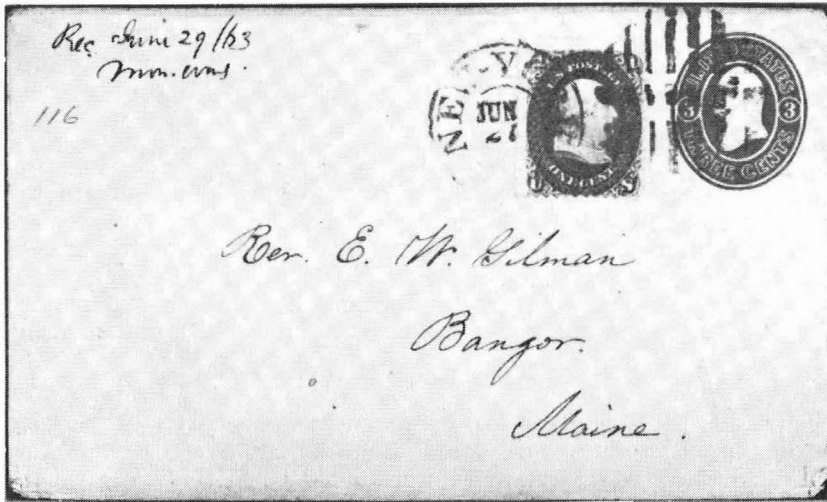 Rec June 29/63
116
NEW-Y
JUN
U.S. POSTAGE
ONE CENT
UNITED STATES
3 3
THREE CENTS
Rev. E. W. Gilman
Bangor.
Maine.